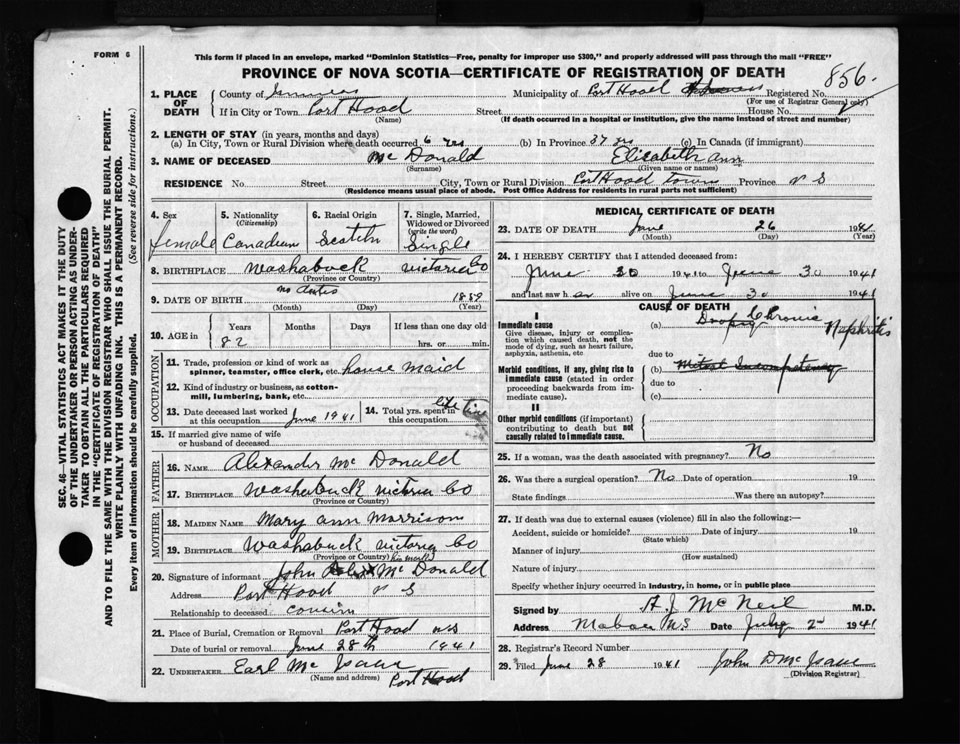 FORM 6
This form if placed in an envelope, marked "Dominion Statistics—Free, penalty for improper use $300," and properly addressed will pass through the mail "FREE"
PROVINCE OF NOVA SCOTIA—CERTIFICATE OF REGISTRATION OF DEATH
856.
1. PLACE OF DEATH
County of Inverness Municipality of Port Hood Registered No.
(For use of Registrar General only)
If in City or Town Port Hood Street House No.
(Name) (If death occurred in a hospital or institution, give the name instead of street and number)
2. LENGTH OF STAY (in years, months and days)
(a) In City, Town or Rural Division where death occurred 6 yrs (b) In Province 37 yrs (c) In Canada (if immigrant)
3. NAME OF DECEASED Mc Donald Elizabeth Ann
(Surname) (Given name or names)
RESIDENCE No. Street City, Town or Rural Division Port Hood Town Province N S
(Residence means usual place of abode. Post Office Address for residents in rural parts not sufficient)
4. Sex female
5. Nationality (Citizenship) Canadian
6. Racial Origin Scotch
7. Single, Married, Widowed or Divorced (write the word) Single
8. BIRTHPLACE Washabuck Victoria Co
(Province or Country)
9. DATE OF BIRTH no dates 1859
(Month) (Day) (Year)
10. AGE in Years Months Days If less than one day old
82 hrs. or min.
OCCUPATION
11. Trade, profession or kind of work as spinner, teamster, office clerk, etc. house maid
12. Kind of industry or business, as cotton-mill, lumbering, bank, etc.
13. Date deceased last worked at this occupation June 1941
14. Total yrs. spent in this occupation life time
15. If married give name of wife or husband of deceased
FATHER
16. NAME Alexander Mc Donald
17. BIRTHPLACE Washabuck Victoria Co
(Province or Country)
MOTHER
18. MAIDEN NAME Mary Ann Morrison
19. BIRTHPLACE Washabuck Victoria Co
(Province or Country)
20. Signature of informant John Mc Donald
Address Port Hood N S
Relationship to deceased cousin
21. Place of Burial, Cremation or Removal Port Hood N S
Date of burial or removal June 28th 1941
22. UNDERTAKER Earl Mc Isaac
(Name and address) Port Hood
MEDICAL CERTIFICATE OF DEATH
23. DATE OF DEATH June 26 1941
(Month) (Day) (Year)
24. I HEREBY CERTIFY that I attended deceased from:
June 20 1941 to June 30 1941
and last saw her alive on June 30 1941
CAUSE OF DEATH
I
Immediate cause
Give disease, injury or complication which caused death, not the mode of dying, such as heart failure, asphyxia, asthenia, etc
(a) Dropsy Chronic Nephritis
due to
Morbid conditions, if any, giving rise to immediate cause (stated in order proceeding backwards from immediate cause).
(b)
due to
(c)
II
Other morbid conditions (if important) contributing to death but not causally related to immediate cause.
25. If a woman, was the death associated with pregnancy? No
26. Was there a surgical operation? No Date of operation 19
State findings Was there an autopsy?
27. If death was due to external causes (violence) fill in also the following:—
Accident, suicide or homicide? Date of injury 19
(State which)
Manner of injury
(How sustained)
Nature of injury
Specify whether injury occurred in industry, in home, or in public place
Signed by A. J. Mc Neil M.D.
Address Mabou N.S. Date July 2nd 1941
28. Registrar's Record Number
29. Filed June 28 1941 John D Mc Isaac
(Division Registrar)
SEC. 46—VITAL STATISTICS ACT MAKES IT THE DUTY
OF THE UNDERTAKER OR PERSON ACTING AS UNDER-
TAKER TO OBTAIN ALL THE PARTICULARS REQUIRED
IN THE "CERTIFICATE OF REGISTRATION OF DEATH"
AND TO FILE THE SAME WITH THE DIVISION REGISTRAR WHO SHALL ISSUE THE BURIAL PERMIT.
WRITE PLAINLY WITH UNFADING INK. THIS IS A PERMANENT RECORD.
Every item of information should be carefully supplied. (See reverse side for instructions.)